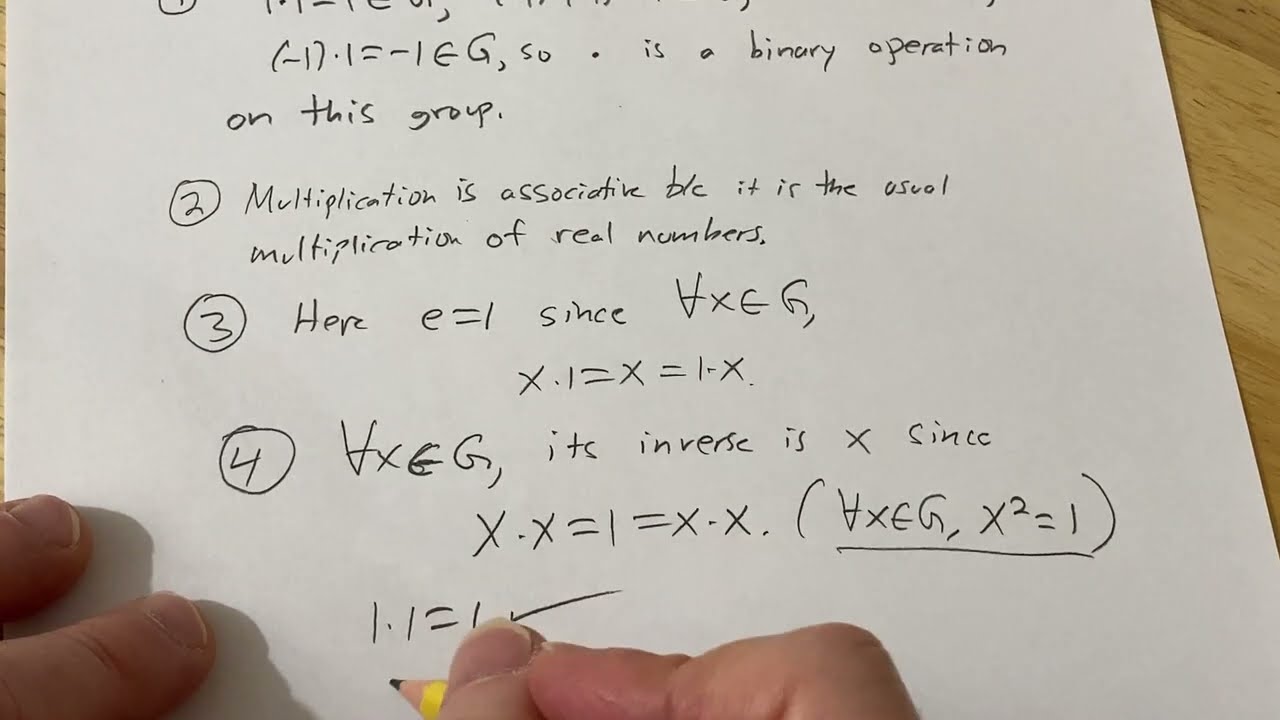 (-1)·1=-1∈G, so · is a binary operation
on this group.
② Multiplication is associative b/c it is the usual
multiplication of real numbers.
③ Here e=1 since ∀x∈G,
x·1=x=1·x.
④ ∀x∈G, its inverse is x since
x·x=1=x·x. (∀x∈G, x²=1)
1·1=1 ✓